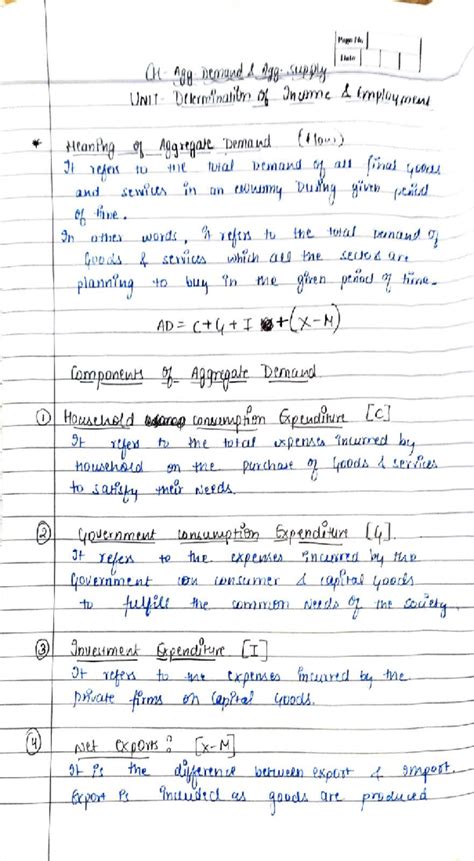 Page No.
Date
CH- Agg. Demand & Agg. Supply
UNIT- Determination of Income & Employment
* Meaning of Aggregate Demand (Flow)
It refers to the total Demand of all final goods
and services in an economy During given period
of time.
In other words, it refers to the total Demand of
Goods & services which all the sectors are
planning to buy in the given period of time.
AD = C+G+I +(X-M)
Components of Aggregate Demand
① Household consumption Expenditure [C]
It refers to the total expenses incurred by
Household on the purchase of Goods & services
to satisfy their Needs.
② Government consumption Expenditure [G].
It refers to the expenses incurred by the
Government on consumer & capital Goods
to fulfill the common Needs of the society.
③ Investment Expenditure [I]
It refers to the expenses incurred by the
private firms on capital Goods.
④ Net exports: [X-M]
It is the difference between export & import.
Export is included as goods are produced